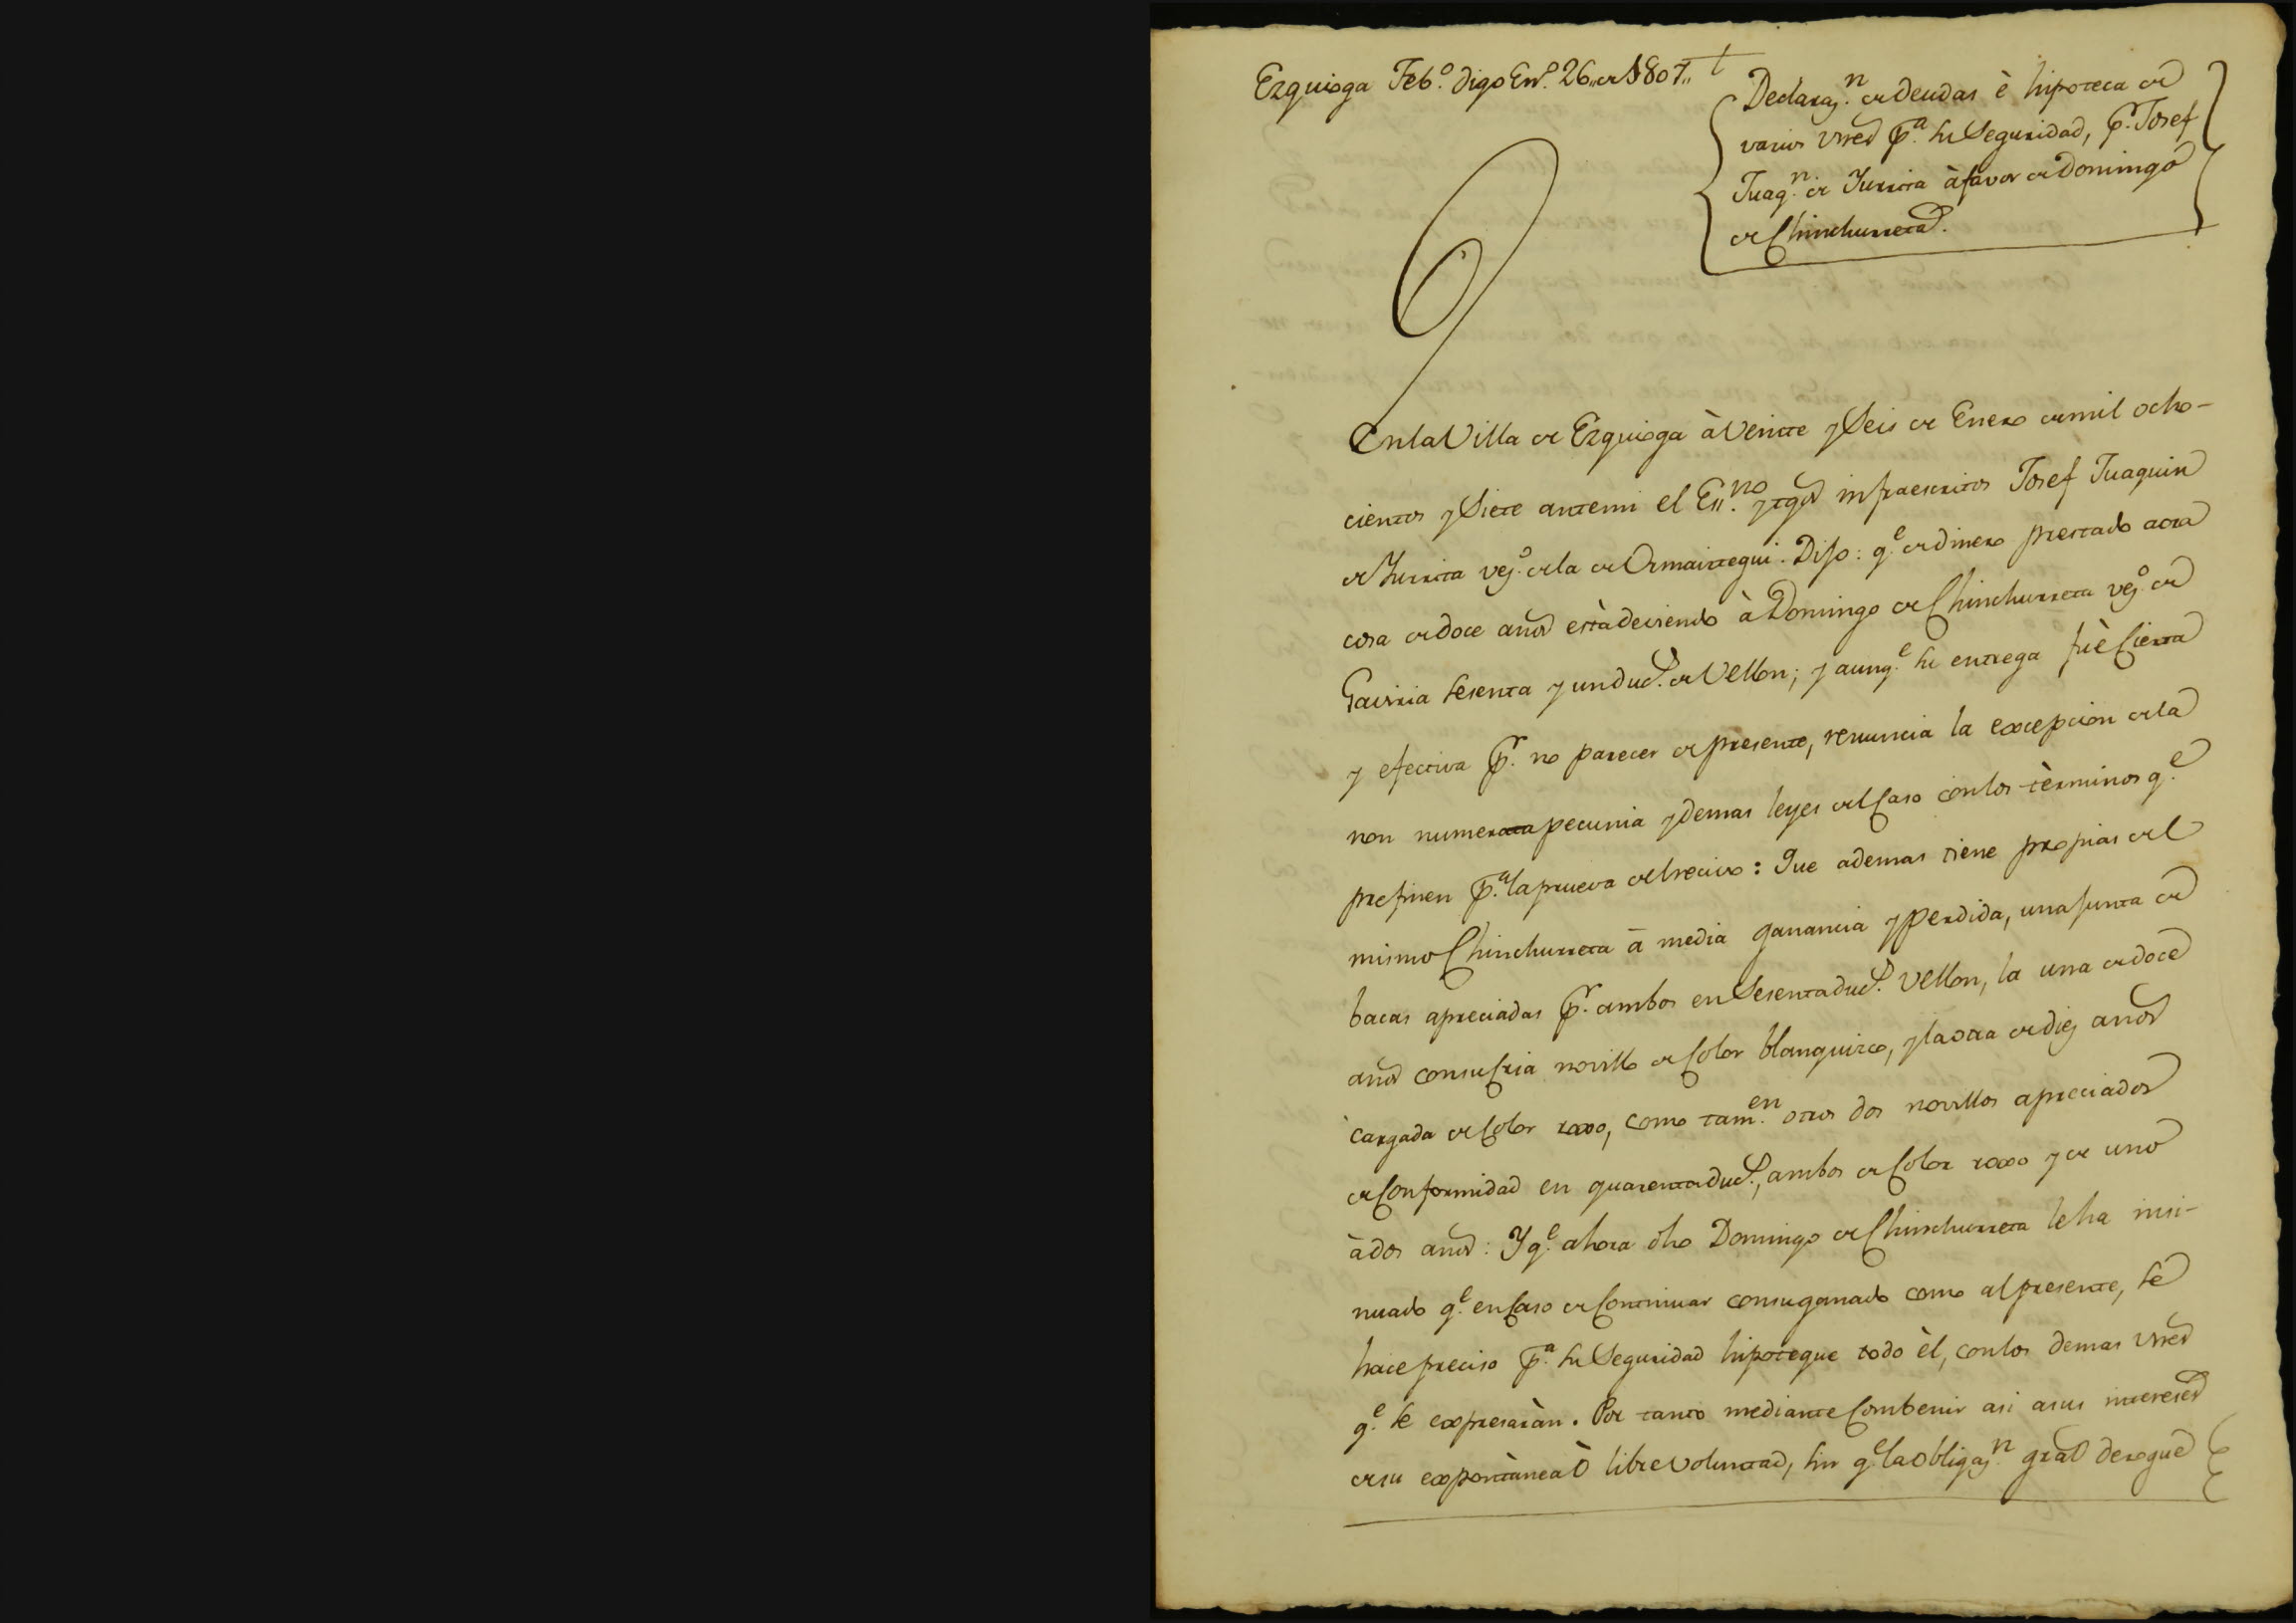 Ezquioga Feb.º digo En.º 26,, de 1807,,
Declaraz.n de deudas è hipoteca de
varios vnes p.a su Seguridad, p.r Josef
Juaq.n de Yurrita à favor de Domingo
de Chinchurreta.
En la Villa de Ezquioga à Veinte y Seis de Enero de mil ocho-
cientos y Siete ante mi el Es.no y tgos infraescritos Josef Juaquin
de Yurrita vez.º de la de Ormaiztegui. Dijo: q.e de dinero prestado aora
cosa de doce años està deviendo à Domingo de Chinchurreta vez.º de
Gaviria sesenta y un duc.s de Vellon; y aunq.e su entrega fuè Cierta
y efectiva p.r no parecer de presente, renuncia la excepcion de la
non numerata pecunia y demas leyes del Caso con los tèrminos q.e
prefinen p.a la prueva del recivo: Que ademas tiene propias del
mismo Chinchurreta à media ganancia y perdida, una junta de
bacas apreciadas p.r ambos en Sesenta duc.s Vellon, la una de doce
años con su Cria novillo de Color blanquizco, y la otra de diez años
cargada de Color roxo, como tam.en otros dos novillos apreciados
de Conformidad en quarenta duc.s, ambos de Color roxo y de uno
à dos años: Y q.e ahora dho Domingo de Chinchurreta le ha insi-
nuado q.e en Caso de Continuar con su ganado como al presente, se
hace preciso p.a su Seguridad hipoteque todo èl, con los demas vnes
q.e se expresaràn. Por tanto mediante Combenir asi a sus intereses
de su expontànea ò libre voluntad, sin q.e la obligaz.n gral derogue